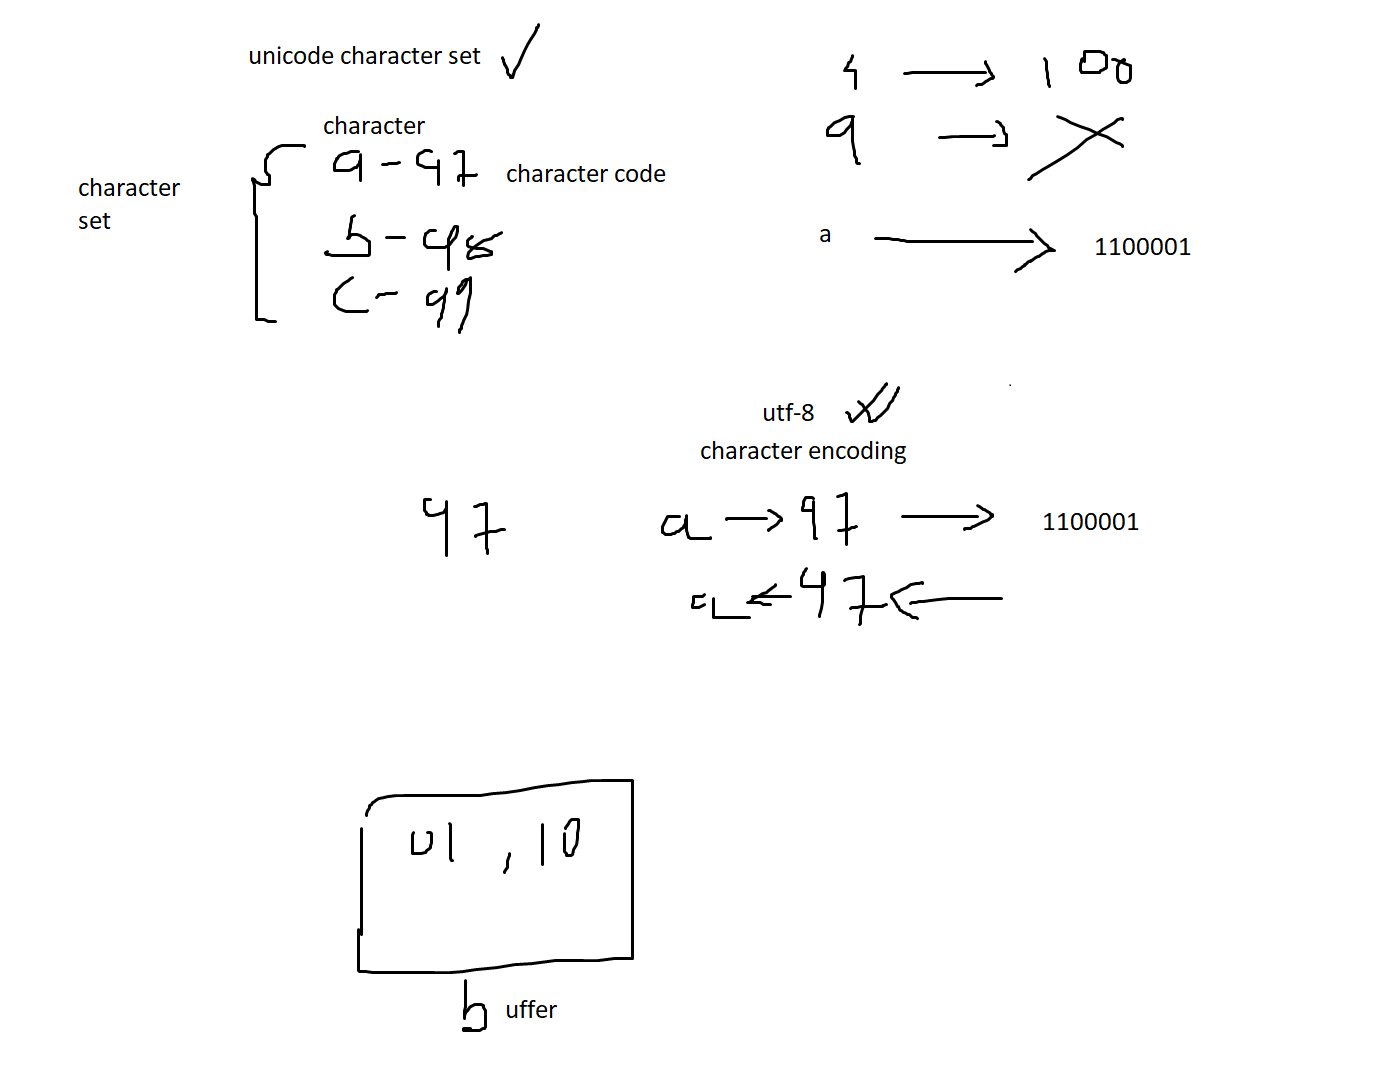 unicode character set
character
character set
a - 97 character code
b - 98
c - 99
4 → 100
a →
a → 1100001
utf-8
character encoding
97
a → 97 → 1100001
a ← 97 ←
01 , 10
buffer